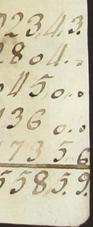 02343.
2804..
6450..
136 0..
17356
55859.